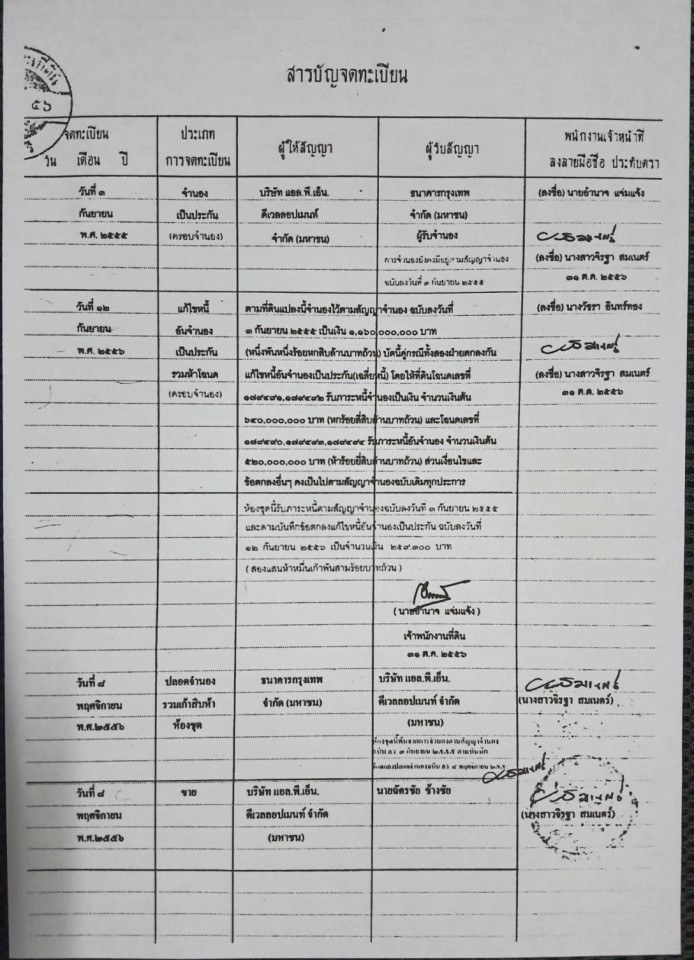 ๕๖
สารบัญจดทะเบียน
จดทะเบียน
วัน เดือน ปี
ประเภท
การจดทะเบียน
ผู้ให้สัญญา
ผู้รับสัญญา
พนักงานเจ้าหน้าที่
ลงลายมือชื่อ ประทับตรา
วันที่ ๓
กันยายน
พ.ศ. ๒๕๕๕
จำนอง
เป็นประกัน
(ครอบจำนอง)
บริษัท แอล.พี.เอ็น.
ดีเวลลอปเมนท์
จำกัด (มหาชน)
ธนาคารกรุงเทพ
จำกัด (มหาชน)
ผู้รับจำนอง
การจำนองยังคงมีอยู่ตามสัญญาจำนอง
ฉบับลงวันที่ ๓ กันยายน ๒๕๕๕
(ลงชื่อ) นายอำนาจ แจ่มแจ้ง
(ลงชื่อ) นางสาวจิรฐา สมเนตร์
๓๑ ต.ค. ๒๕๕๖
วันที่ ๑๒
กันยายน
พ.ศ. ๒๕๕๖
แก้ไขหนี้
อันจำนอง
เป็นประกัน
รวมห้าโฉนด
(ครอบจำนอง)
ตามที่ดินแปลงนี้จำนองไว้ตามสัญญาจำนอง ฉบับลงวันที่
๓ กันยายน ๒๕๕๕ เป็นเงิน ๑,๑๖๐,๐๐๐,๐๐๐ บาท
(หนึ่งพันหนึ่งร้อยหกสิบล้านบาทถ้วน) บัดนี้คู่กรณีทั้งสองฝ่ายตกลงกัน
แก้ไขหนี้อันจำนองเป็นประกัน(เฉลี่ยหนี้) โดยให้ที่ดินโฉนดเลขที่
๑๗๙๔๙๑,๑๗๙๔๙๒ รับภาระหนี้จำนองเป็นเงิน จำนวนเงินต้น
๖๔๐,๐๐๐,๐๐๐ บาท (หกร้อยสี่สิบล้านบาทถ้วน) และโฉนดเลขที่
๑๗๙๔๙๐,๑๗๙๔๙๓,๑๗๙๔๙๔ รับภาระหนี้อันจำนอง จำนวนเงินต้น
๕๒๐,๐๐๐,๐๐๐ บาท (ห้าร้อยยี่สิบล้านบาทถ้วน) ส่วนเงื่อนไขและ
ข้อตกลงอื่นๆ คงเป็นไปตามสัญญาจำนองฉบับเดิมทุกประการ
(ลงชื่อ) นางวัชรา อินทร์ทอง
(ลงชื่อ) นางสาวจิรฐา สมเนตร์
๓๑ ต.ค. ๒๕๕๖
ห้องชุดนี้รับภาระหนี้ตามสัญญาจำนองฉบับลงวันที่ ๓ กันยายน ๒๕๕๕
และตามบันทึกข้อตกลงแก้ไขหนี้อันจำนองเป็นประกัน ฉบับลงวันที่
๑๒ กันยายน ๒๕๕๖ เป็นจำนวนเงิน ๒๕๙,๓๐๐ บาท
( สองแสนห้าหมื่นเก้าพันสามร้อยบาทถ้วน )
( นายอำนาจ แจ่มแจ้ง )
เจ้าพนักงานที่ดิน
๓๑ ต.ค. ๒๕๕๖
วันที่ ๘
พฤศจิกายน
พ.ศ.๒๕๕๖
ปลอดจำนอง
รวมเก้าสิบห้า
ห้องชุด
ธนาคารกรุงเทพ
จำกัด (มหาชน)
บริษัท แอล.พี.เอ็น.
ดีเวลลอปเมนท์ จำกัด
(มหาชน)
(นางสาวจิรฐา สมเนตร์)
วันที่ ๘
พฤศจิกายน
พ.ศ.๒๕๕๖
ขาย
บริษัท แอล.พี.เอ็น.
ดีเวลลอปเมนท์ จำกัด
(มหาชน)
นายฉัตรชัย ช้างชัย
(นางสาวจิรฐา สมเนตร์)